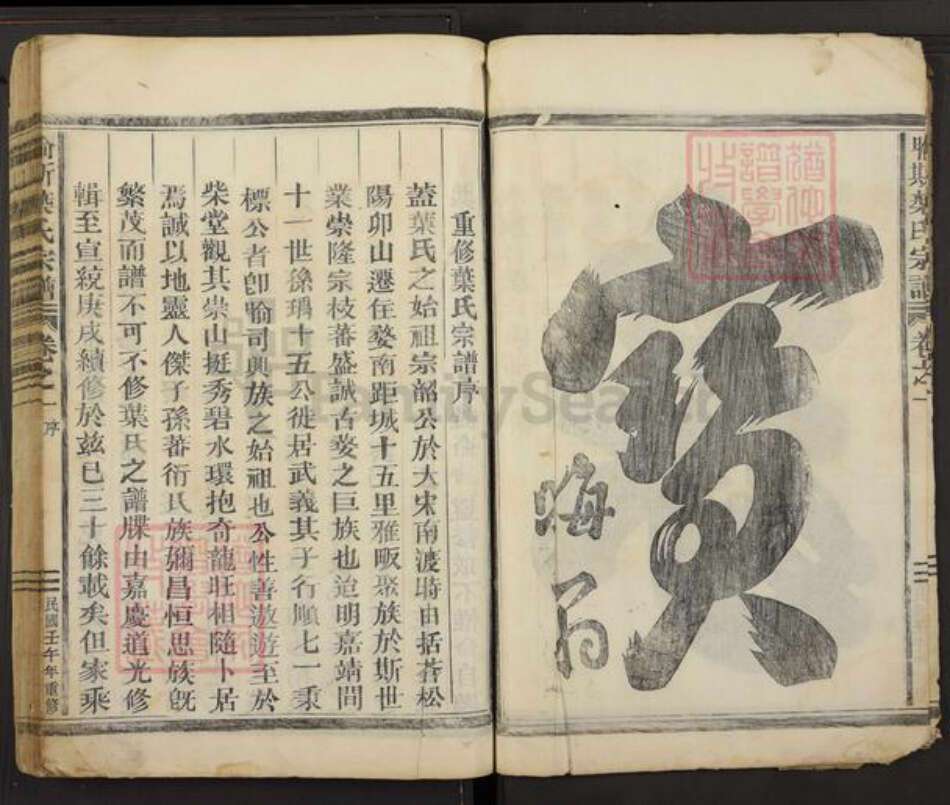 寶
晦翁
葉氏宗譜
卷之一
重修葉氏宗譜序
蓋葉氏之始祖宗韶公於大宋南渡時由括蒼松
陽卯山遷住婺南距城十五里雅畈聚族於斯世
業崇隆宗枝蕃盛誠古婺之巨族也迨明嘉靖間
十一世孫瑀十五公徙居武義其子行順七一秉
標公者卽睮司興族之始祖也公性善遨遊至於
柴堂觀其崇山挺秀碧水環抱奇龍旺相隨卜居
焉誠以地靈人傑子孫蕃衍氏族彌昌恒思族旣
繁茂而譜不可不修葉氏之譜牒由嘉慶道光修
輯至宣統庚戌續修於兹巳三十餘載矣但家乘
葉氏宗譜
卷之一
序
民國壬午年重修